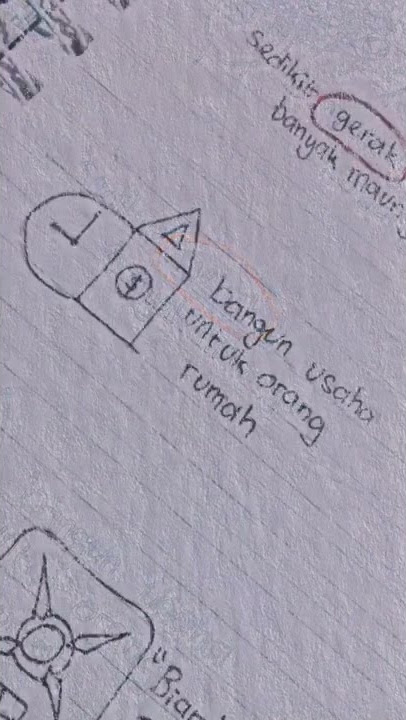 sedikit gerak
banyak
bangun usaha
untuk orang
rumah